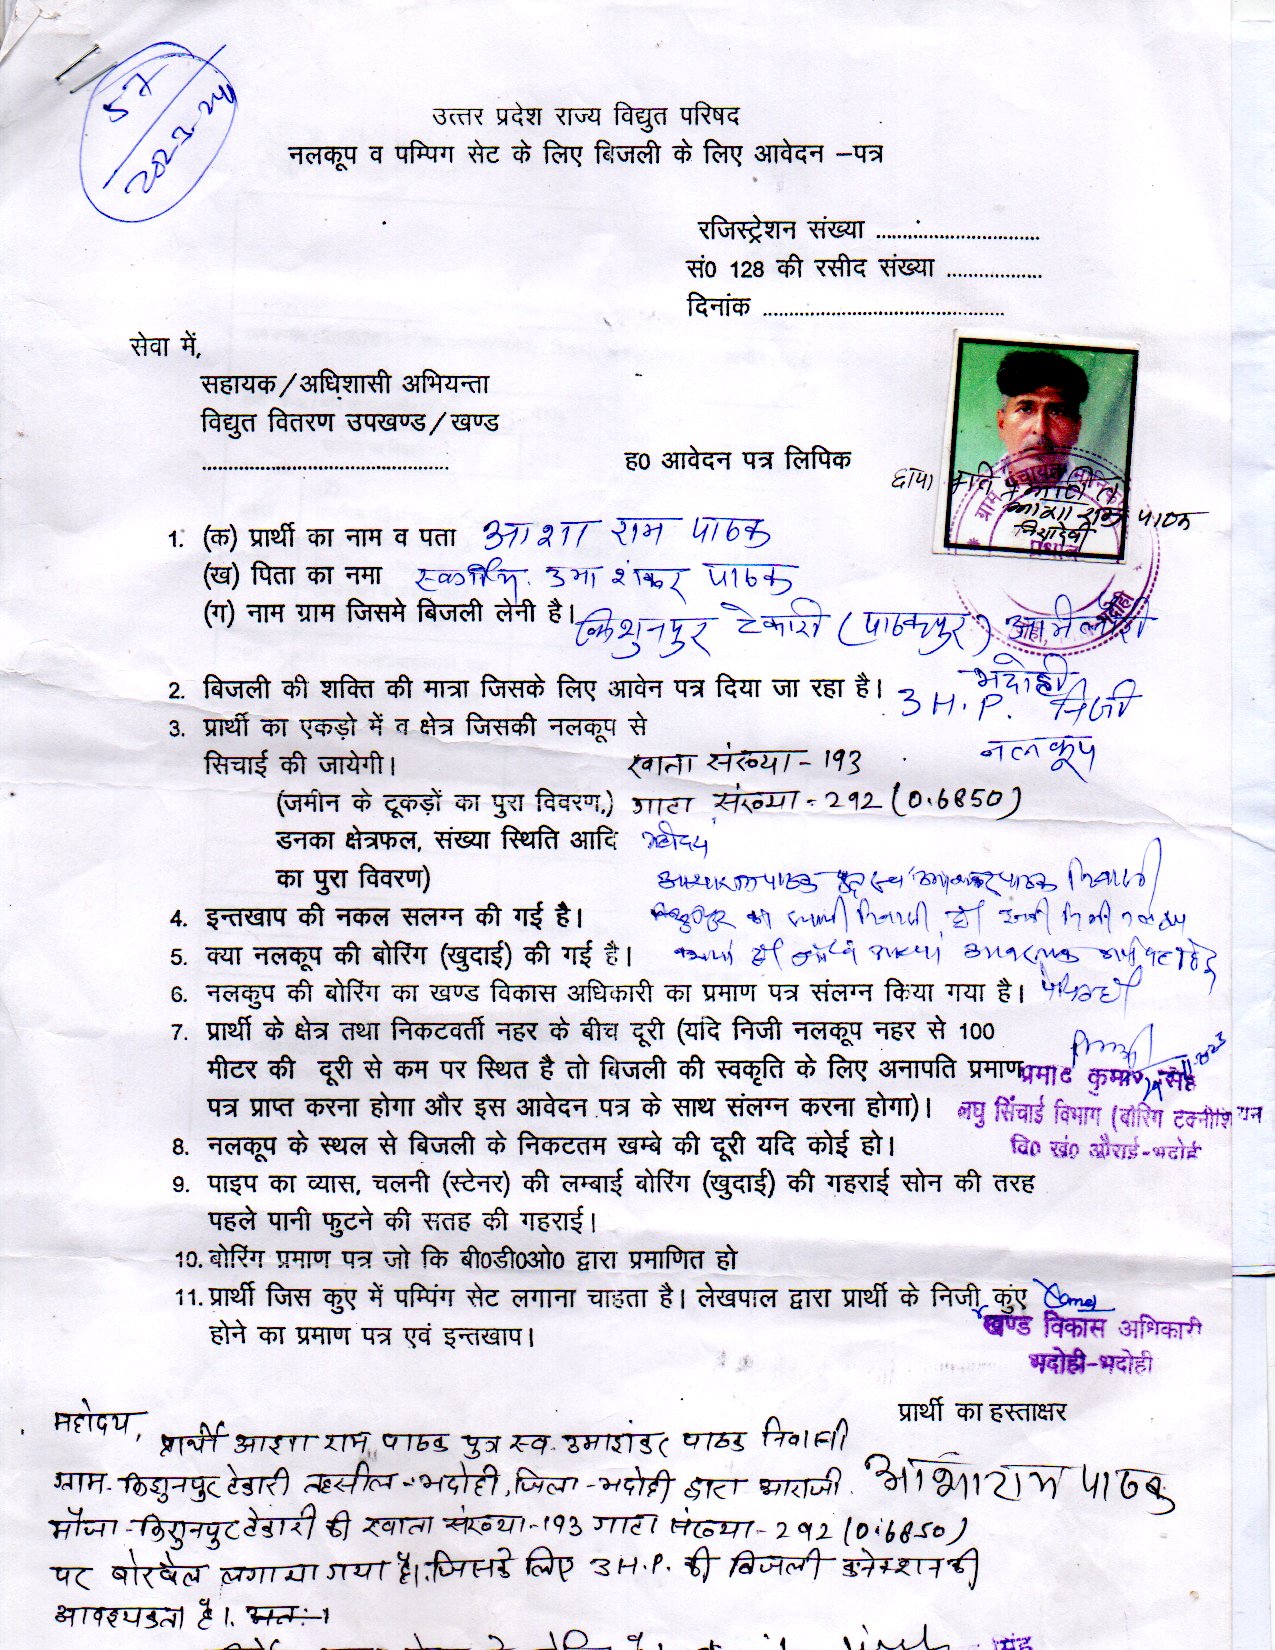 57
2023-24
उत्तर प्रदेश राज्य विद्युत परिषद
नलकूप व पम्पिग सेट के लिए बिजली के लिए आवेदन –पत्र
रजिस्ट्रेशन संख्या ................................
सं0 128 की रसीद संख्या ..................
दिनांक ..............................................
सेवा में,
सहायक/अधिशासी अभियन्ता
विद्युत वितरण उपखण्ड/खण्ड
...............................................
ह0 आवेदन पत्र लिपिक
1. (क) प्रार्थी का नाम व पता आशा राम पाठक
(ख) पिता का नमा उमा शंकर पाठक
(ग) नाम ग्राम जिसमे बिजली लेनी है।
किशुनपुर टेकारी (पाठकपुर)
भदोही
2. बिजली की शक्ति की मात्रा जिसके लिए आवेन पत्र दिया जा रहा है। 3 H.P. निजी
नलकूप
3. प्रार्थी का एकड़ो में व क्षेत्र जिसकी नलकूप से
सिचाई की जायेगी। खाता संख्या - 193
(जमीन के टूकड़ों का पुरा विवरण,) गाटा संख्या - 292 (0.6850)
डनका क्षेत्रफल, संख्या स्थिति आदि महोदय
का पुरा विवरण)
4. इन्तखाप की नकल सलग्न की गई है।
5. क्या नलकूप की बोरिंग (खुदाई) की गई है।
6. नलकुप की बोरिंग का खण्ड विकास अधिकारी का प्रमाण पत्र संलग्न किया गया है।
7. प्रार्थी के क्षेत्र तथा निकटवर्ती नहर के बीच दूरी (यदि निजी नलकूप नहर से 100
मीटर की दूरी से कम पर स्थित है तो बिजली की स्वकृति के लिए अनापति प्रमाण
पत्र प्राप्त करना होगा और इस आवेदन पत्र के साथ संलग्न करना होगा)।
लघु सिंचाई विभाग (बोरिंग टेक्नीशियन
वि0 खं0 औराई-भदोही
8. नलकूप के स्थल से बिजली के निकटतम खम्बे की दूरी यदि कोई हो।
9. पाइप का व्यास, चलनी (स्टेनर) की लम्बाई बोरिंग (खुदाई) की गहराई सोन की तरह
पहले पानी फुटने की सतह की गहराई।
10. बोरिंग प्रमाण पत्र जो कि बी0डी0ओ0 द्वारा प्रमाणित हो
11. प्रार्थी जिस कुए में पम्पिंग सेट लगाना चाहता है। लेखपाल द्वारा प्रार्थी के निजी कुंए
होने का प्रमाण पत्र एवं इन्तखाप।
खण्ड विकास अधिकारी
भदोही-भदोही
प्रार्थी का हस्ताक्षर
आशाराम पाठक
महोदय,
प्रार्थी आशा राम पाठक पुत्र स्व. उमाशंकर पाठक निवासी
ग्राम- किशुनपुर टेकारी तहसील - भदोही, जिला - भदोही द्वारा आराजी
मौजा - किशुनपुर टेकारी की खाता संख्या - 193 गाटा संख्या - 292 (0.6850)
पर बोरवेल लगाया गया है। जिसके लिए 3 H.P. की बिजली कनेक्शन की
आवश्यकता है। अतः।